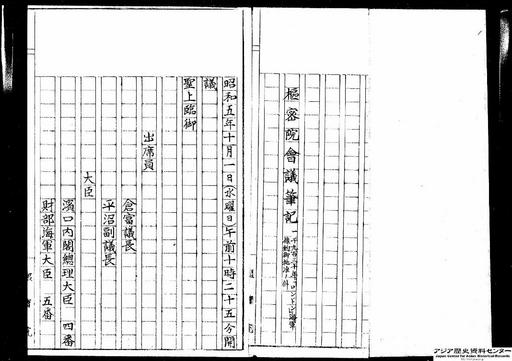 樞密院會議筆記
一、千九百三十年ロンドン海軍
條約御批准ノ件
昭和五年十月一日(水曜日)午前十時二十五分開
議
聖上臨御
出席員
倉富議長
平沼副議長
大臣
濱口內閣總理大臣 四番
財部海軍大臣 五番
アジア歴史資料センター
Japan Center for Asian Historical Records